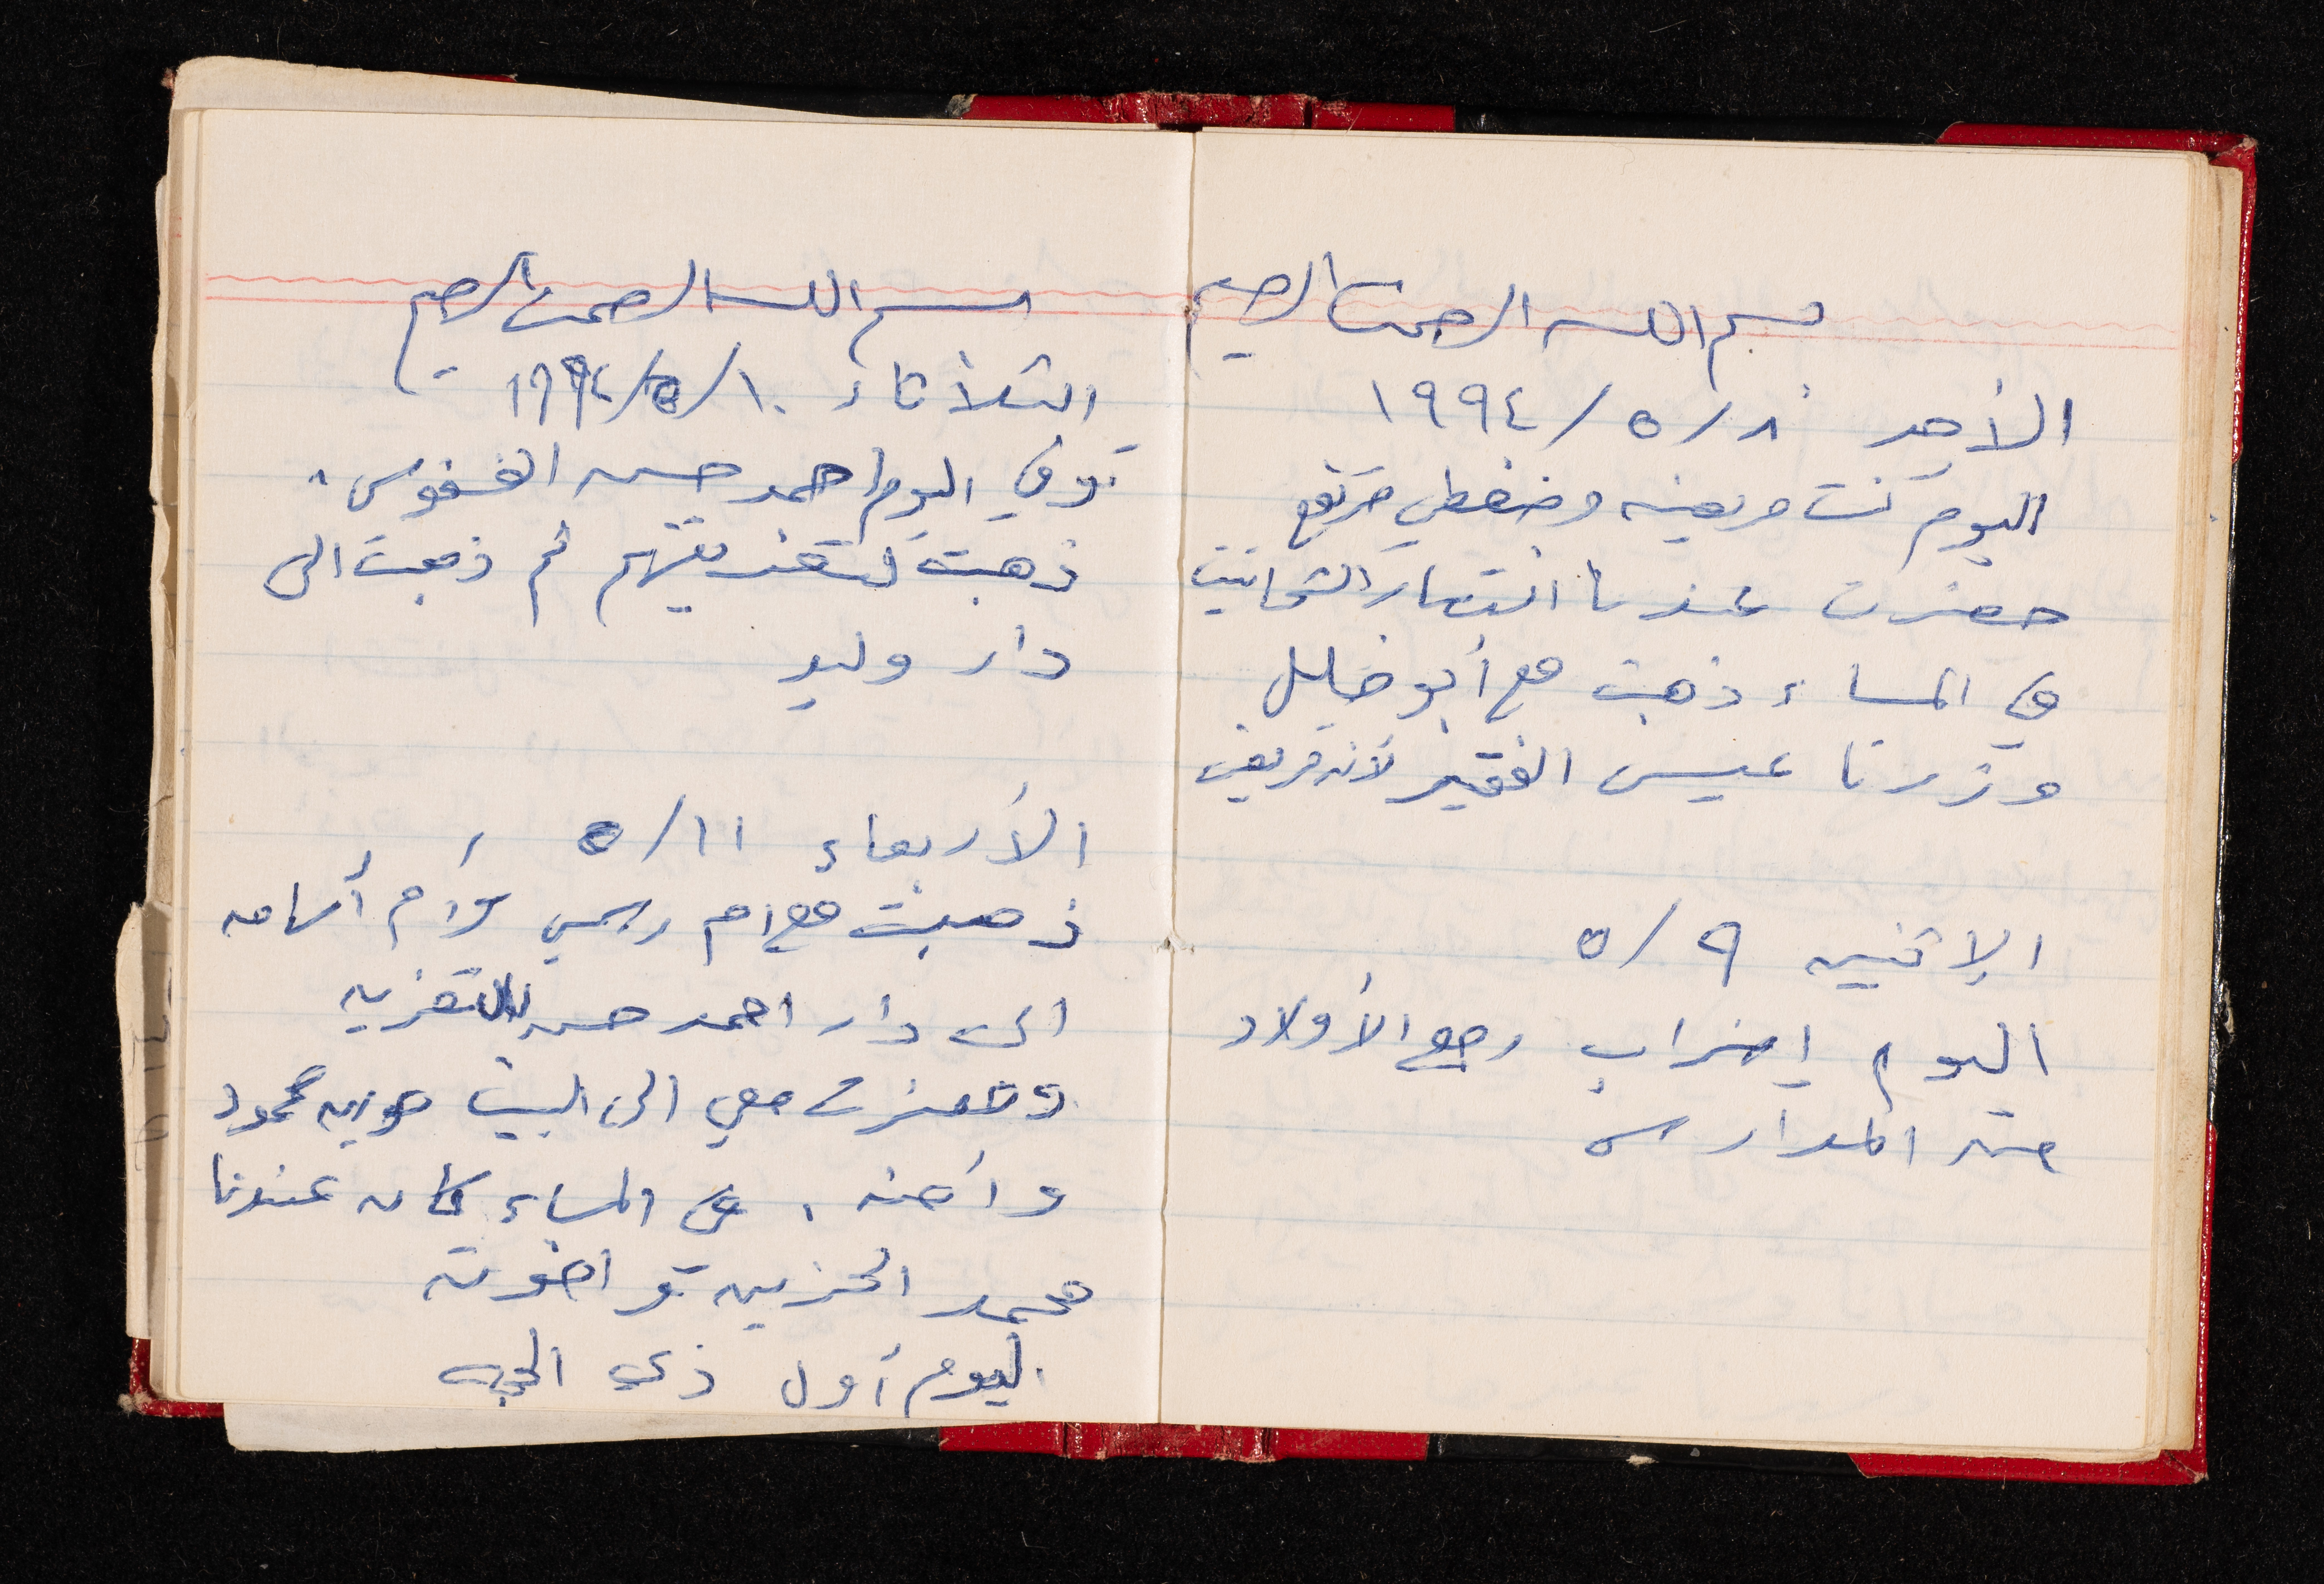 بسم الله الرحمن الرحيم
الأحد ٨/٥/١٩٩٤
اليوم كنت مريضه وضغطي مرتفع
حضرت عندنا انتصار الشحاتيت
في المساء ذهبت مع أبو خليل
وزرنا عيسى الفقير لأنه مريض
الإثنين ٩/٥
اليوم إضراب رجع الأولاد
من المدارس
بسم الله الرحمن الرحيم
الثلاثاء ١٠/٥/١٩٩٤
توفي اليوم احمد حسن
ذهبت لتعزيتهم ثم ذهبت الى
دار وليد
الأربعاء ١١/٥
ذهبت مع ام رسمي و أم أسامه
الى دار احمد حسن للتعزيه
وحضرت معي الى البيت محمود
في المساء كان عندنا
محمد الحزين و اخوته
اليوم أول ذي الحجه